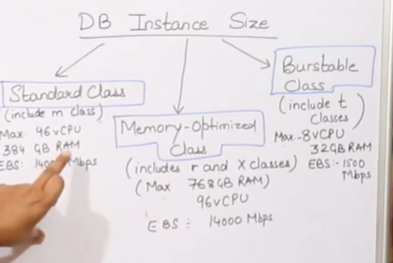 DB Instance Size
Standard Class
(include m class)
Max 96vCPU
384 GB RAM
EBS: 14000 Mbps
Memory-Optimized
Class
(includes r and X classes)
(Max 768GB RAM)
96vCPU
EBS: 14000 Mbps
Burstable
Class
(include t
classes)
Max-8vCPU
32GB RAM
EBS:-1500
Mbps